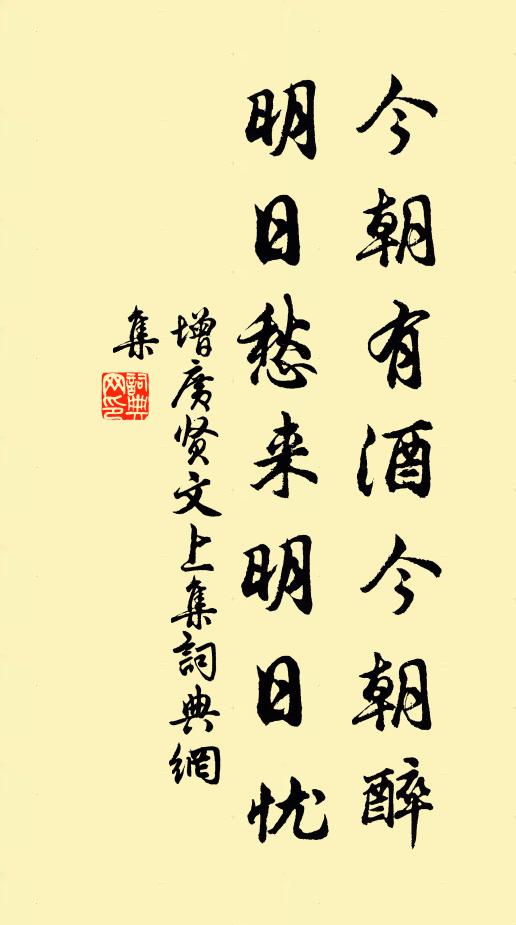 今朝有酒今朝醉
明日愁来明日忧
增广贤文上集詞典網
集
詞典网印